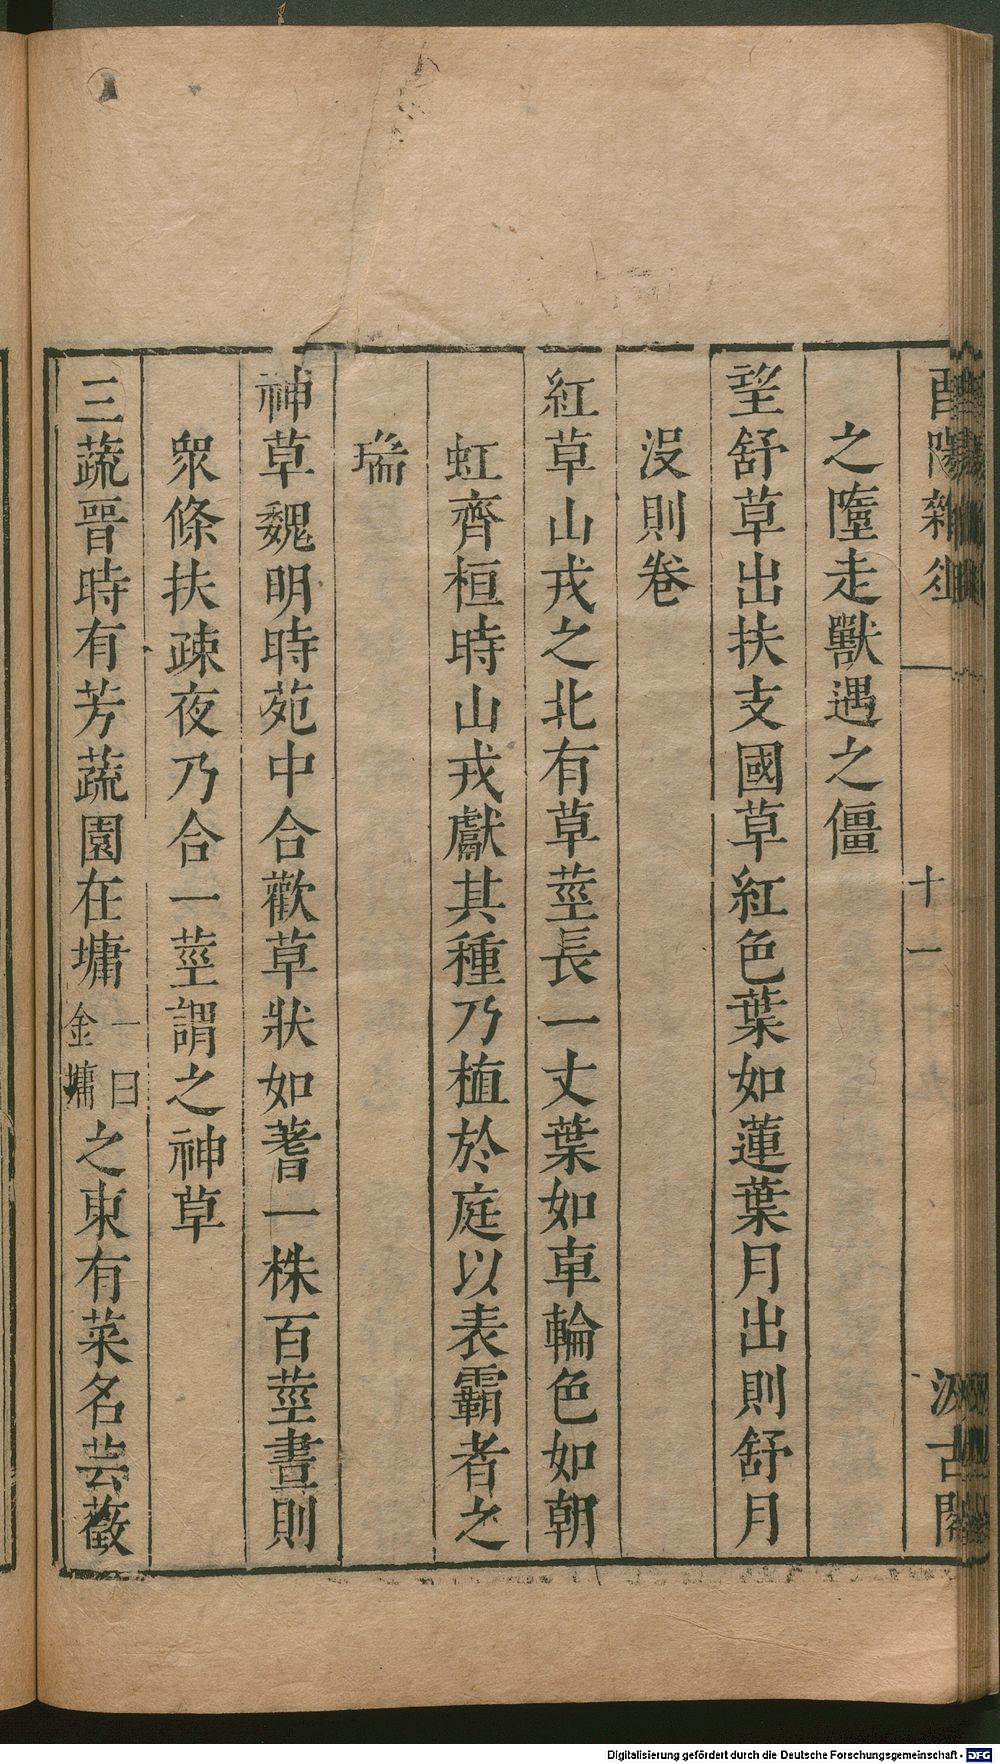 酉陽雜俎
十一
汲古閣
之墮走獸遇之僵
望舒草出扶支國草紅色葉如蓮葉月出則舒月
沒則卷
紅草山戎之北有草莖長一丈葉如車輪色如朝
虹齊桓時山戎獻其種乃植於庭以表霸者之
瑞
神草魏明時苑中合歡草狀如蓍一株百莖晝則
衆條扶疎夜乃合一莖謂之神草
三蔬晉時有芳蔬園在墉一曰金墉之東有菜名芸薇
Digitalisierung gefördert durch die Deutsche Forschungsgemeinschaft - DFG